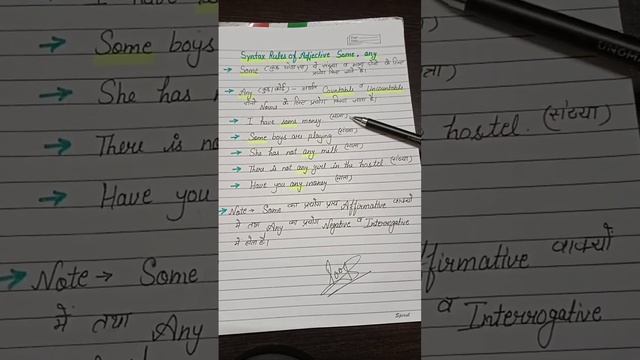 Syntax Rules of Adjective Some, any
→ Some (कुछ
प्रयोग किए जाते हैं।
→ Any (कुछ/कोई) - अर्थात Countable व Uncountable
दोनों Nouns के लिए प्रयोग किया जाता है।
→ I have some money (मात्रा)
→ Some boys are playing (संख्या)
→ She has not any milk (मात्रा)
→ There is not any girl in the hostel (संख्या)
→ Have you any money (मात्रा)
→ Note → Some का प्रयोग Affirmative वाक्यों
में तथा Any का प्रयोग Negative व Interrogative
में होता है।
Spiral
Some boys
She has
There is no
Have you
Note → Some
में तथा Any
hostel. (संख्या)
ffirmative वाक्यों
व Interrogative